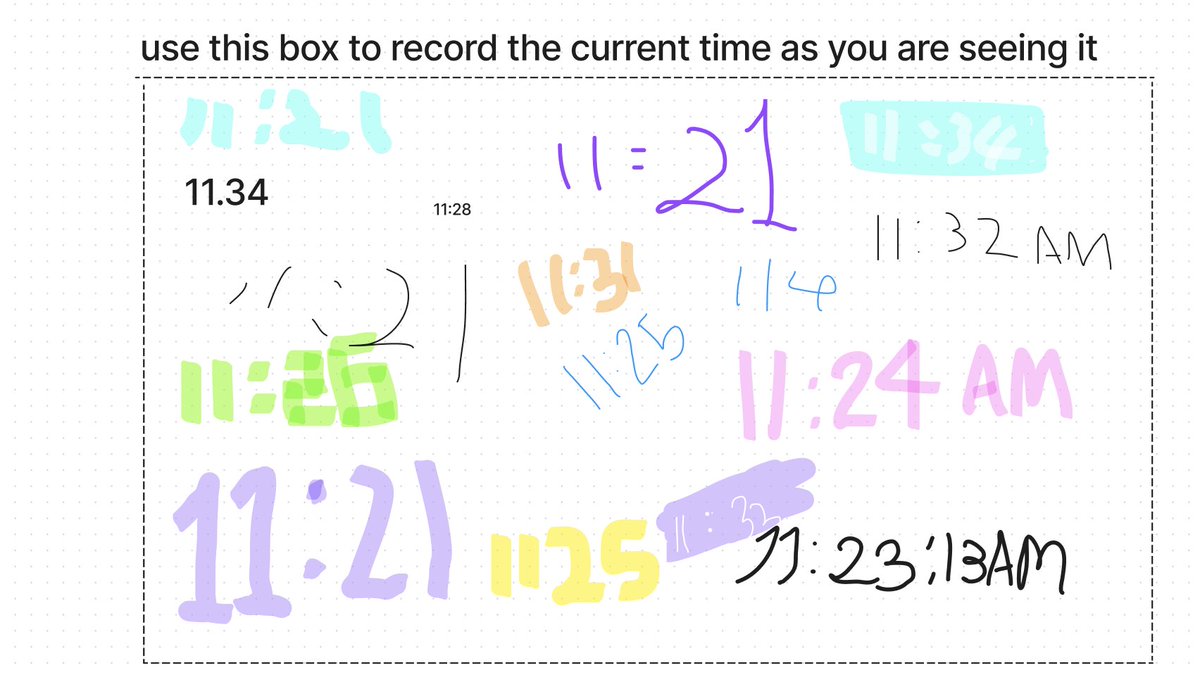 use this box to record the current time as you are seeing it
11:21
11=21
11:34
11.34
11:28
11:32 AM
11:21
11:31
114
11:25
11:26
11:24 AM
11:21
1125
11:32
11:23:13AM